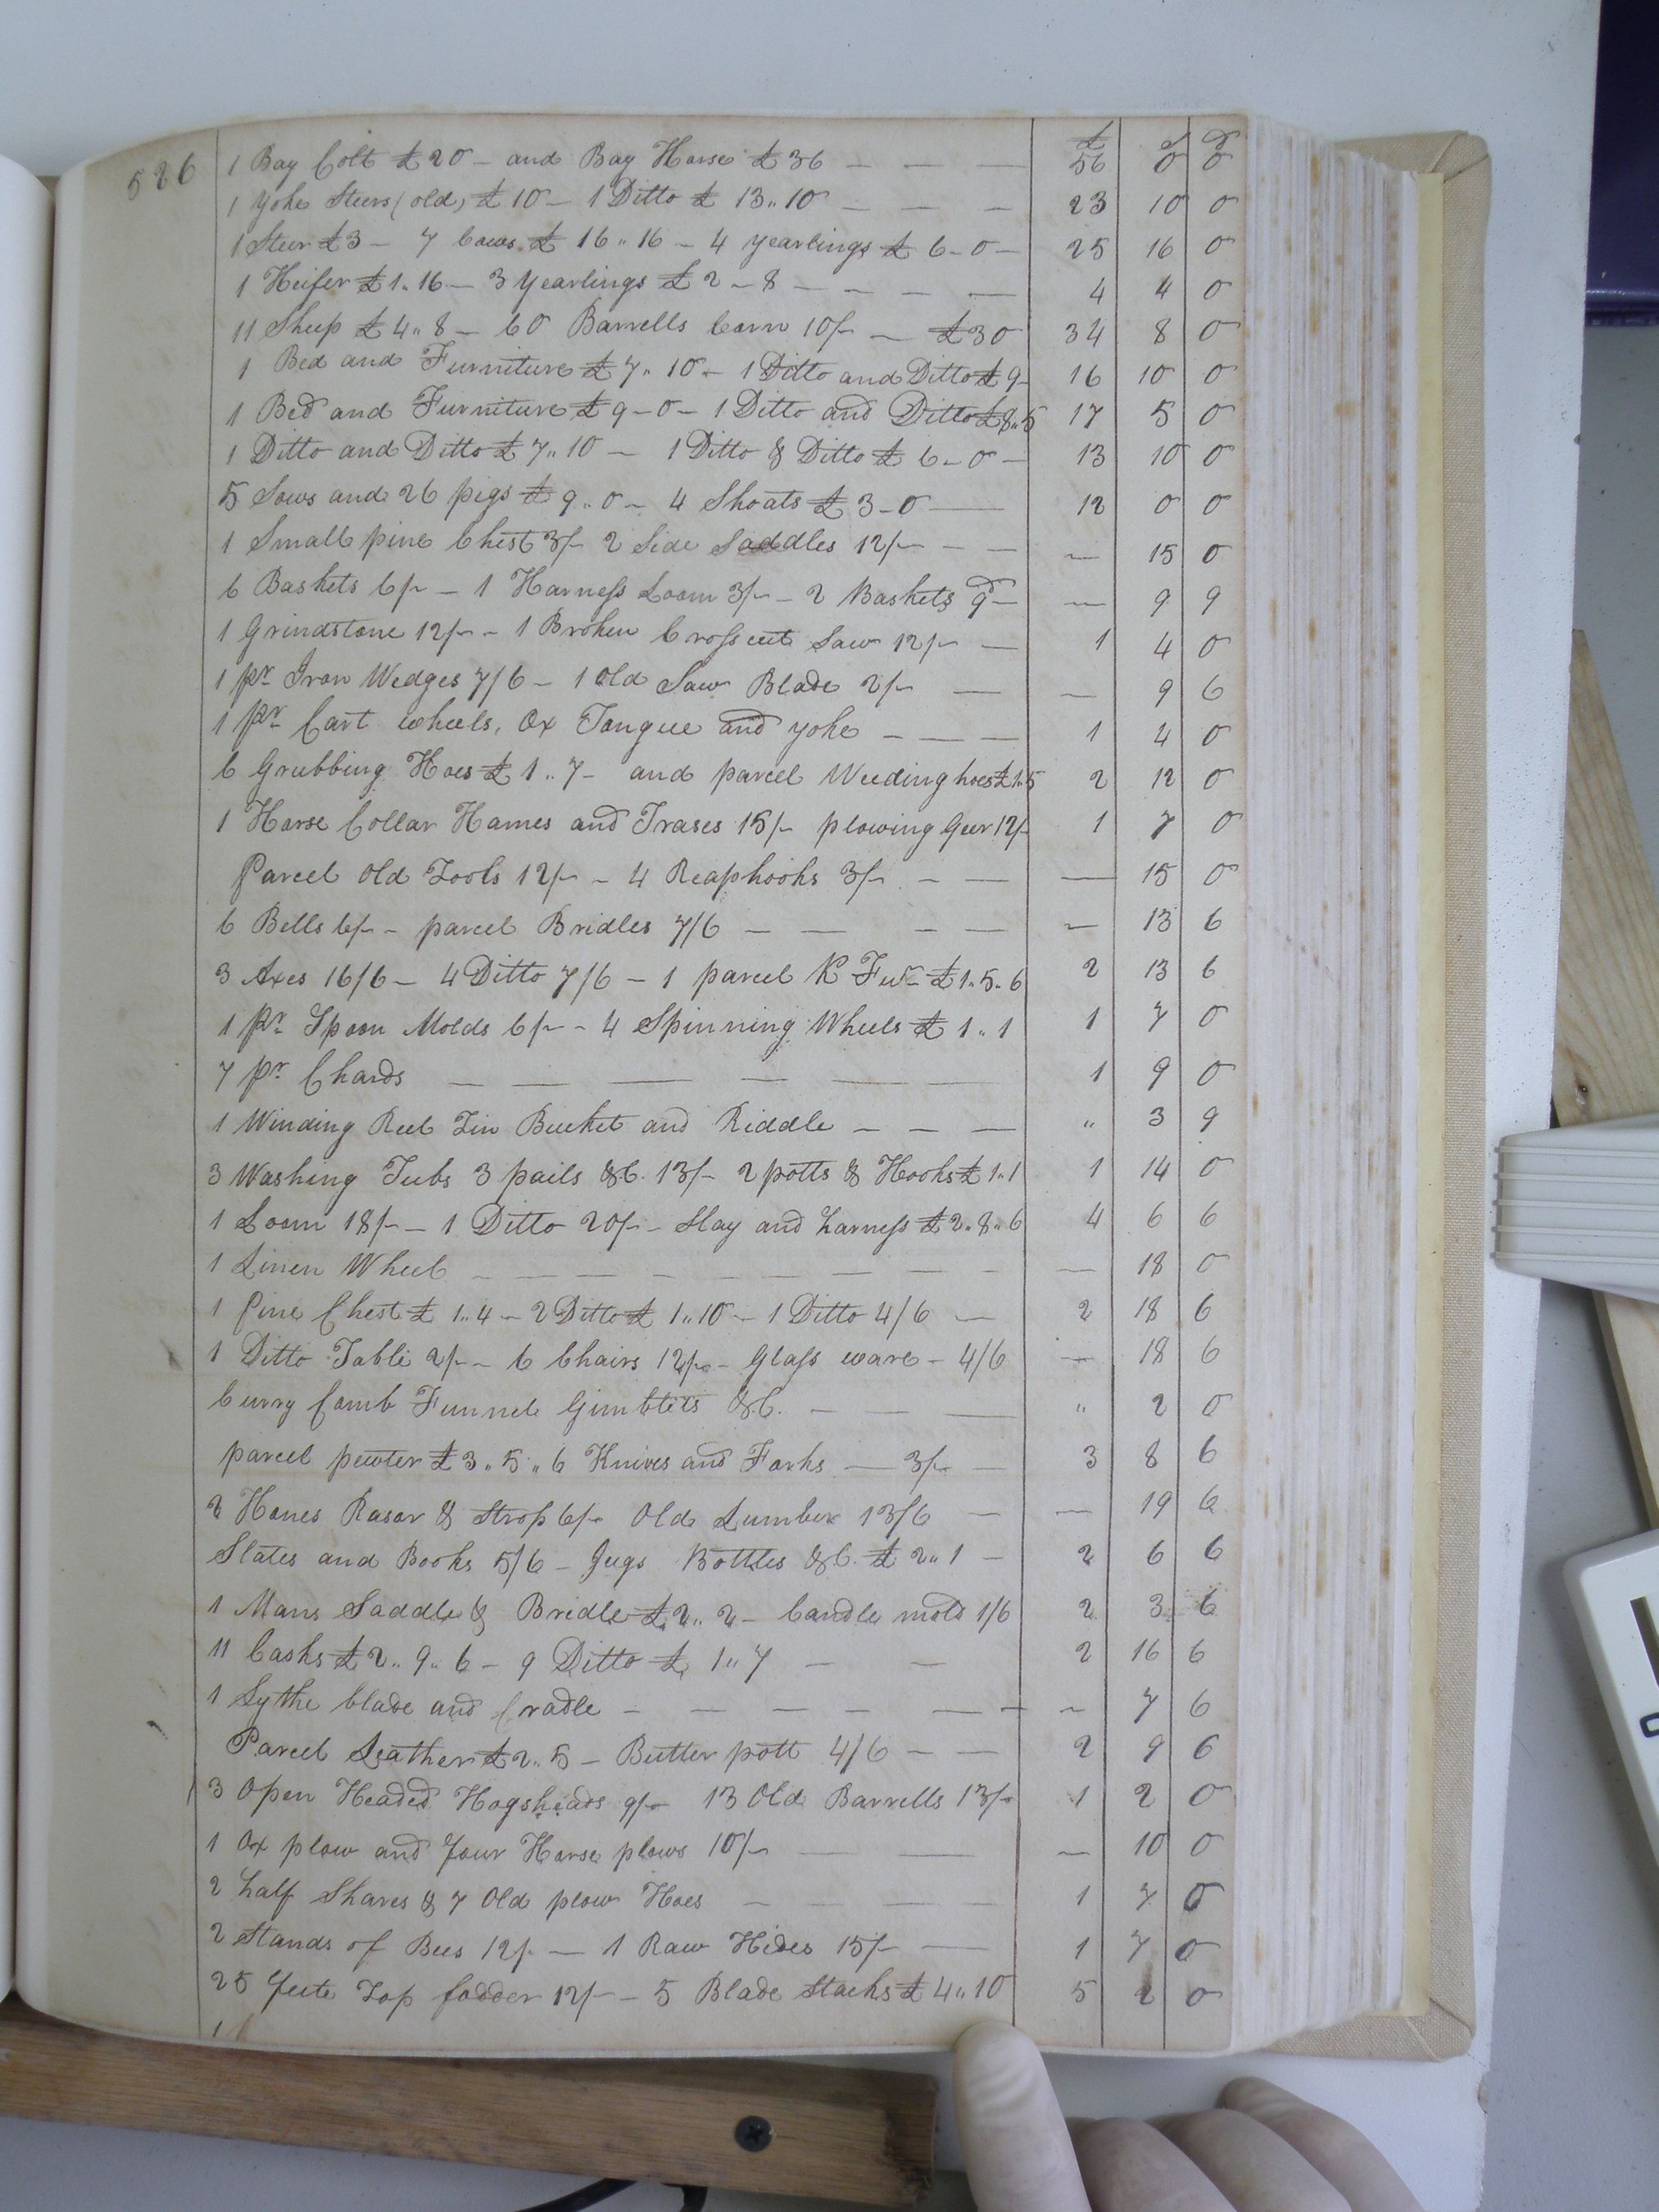 526
£ s d
1 Bay Colt £20 – and Bay Horse £36 – – — 56 0 0
1 Yoke Steers (old) £10 – 1 Ditto £13..10 – – – 23 10 0
1 Steer £3 – 7 Cows £16..16 – 4 yearlings £6–0 – 25 16 0
1 Heifer £1..16 – 3 Yearlings £2–8 – – – — 4 4 0
11 Sheep £4..8 – 60 Barrells Corn 10/– – £30 34 8 0
1 Bed and Furniture £7..10 – 1 Ditto and Ditto £9– 16 10 0
1 Bed and Furniture £9–0 – 1 Ditto and Ditto £8..5 17 5 0
1 Ditto and Ditto £7..10 – 1 Ditto & Ditto £6–0 – 13 10 0
5 Sows and 26 pigs £9..0 – 4 Shoats £3–0 — 12 0 0
1 Small pine Chest 3/– 2 Side Saddles 12/– – – — 15 0
6 Baskets 6/– – 1 Harness Loom 3/– – 2 Baskets 9d – — 9 9
1 Grindstone 12/– – 1 Broken Crosscut Saw 12/– — 1 4 0
1 pr Iron Wedges 7/6 – 1 Old Saw Blade 2/– — — 9 6
1 pr Cart wheels, Ox Tongue and yoke – — — 1 4 0
6 Grubbing Hoes £1..7 – and parcel Weeding hoes £1..5 2 12 0
1 Horse Collar Hames and Trases 15/– plowing Geer 12/– 1 7 0
Parcel Old Tools 12/– – 4 Reaphooks 3/– – — — 15 0
6 Bells 6/– – parcel Bridles 7/6 — — – — — 13 6
3 Axes 16/6 – 4 Ditto 7/6 – 1 parcel K Fur £1..5..6 2 13 6
1 pr Spoon Molds 6/– – 4 Spinning Wheels £1..1 1 7 0
7 pr Chards — — — — — — 1 9 0
1 Winding Reel Tin Bucket and Riddle – – — " 3 9
3 Washing Tubs 3 pails &C. 13/– 2 potts & Hooks £1..1 1 14 0
1 Loom 18/– – 1 Ditto 20/– – Slay and harness £2..8..6 4 6 6
1 Linen Wheel – — — – – – — — – — 18 0
1 Pine Chest £1..4 – 2 Ditto £1..10 – 1 Ditto 4/6 — 2 18 6
1 Ditto Table 2/– – 6 Chairs 12/– – Glass ware – 4/6 — 18 6
Curry Comb Funnel Gimblets &C. – — — " 2 0
parcel pewter £3..5..6 Knives and Forks — 3/– — 3 8 6
2 Hones Rasor & Strop 6/– Old Lumber 13/6 — — 19 6
Slates and Books 5/6 – Jugs Bottles &C. £2..1 – 2 6 6
1 Mans Saddle & Bridle £2..2 – Candle mold 1/6 2 3 6
11 Casks £2..9..6 – 9 Ditto £1..7 – — 2 16 6
1 Sythe blade and Cradle – — — – — – – 7 6
Parcel Leather £2..5 – Butter pott 4/6 – — 2 9 6
3 Open Headed Hogsheads 9/– 13 Old Barrells 13/– 1 2 0
1 Ox plow and four Horse plows 10/– — — — 10 0
2 half Shares & 7 Old plow Hoes – — — 1 7 0
2 Stands of Bees 12/– — 1 Raw Hides 15/– — 1 7 0
25 feete Top fodder 12/– – 5 Blade Stacks £4..10 5 2 0
1